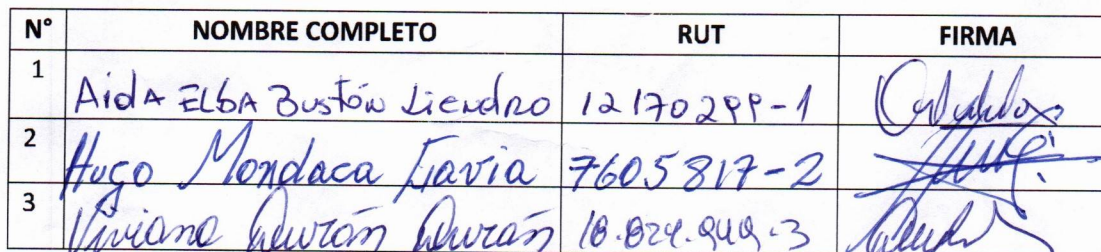 N° NOMBRE COMPLETO RUT FIRMA
1 Aida ELBA Bustón Liendro 12170299-1
2 Hugo Mondaca 7605817-2
3 Viviana Durán Durán